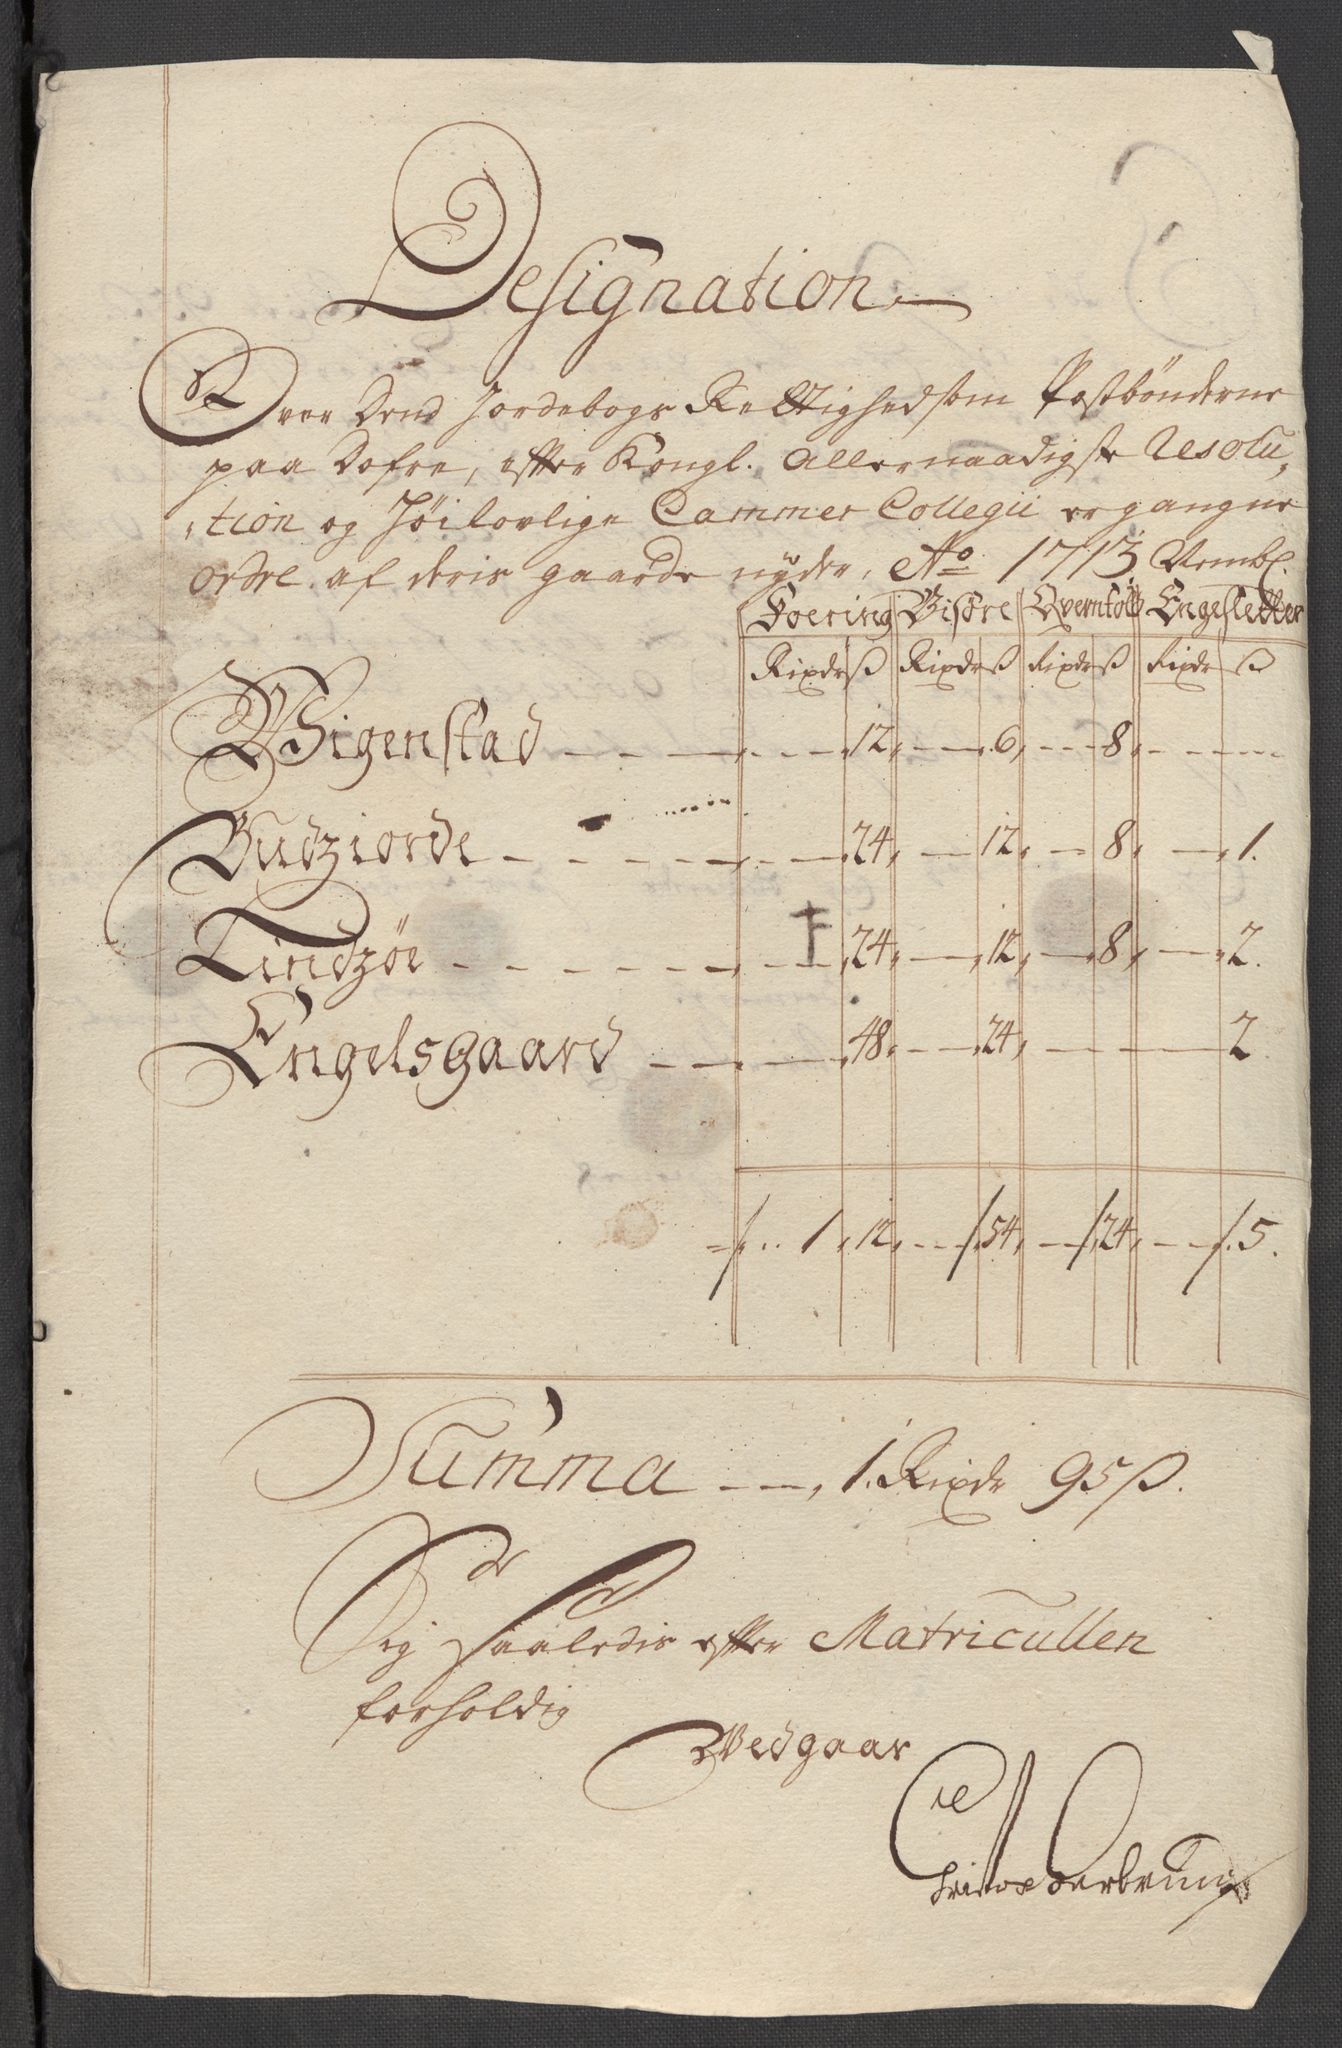 Designation
Over dend Jordebogs Rettighed som Postbønderne
paa Dofre, efter Kongl. Allernaadigste Resolu-
tion og Høilovlige Cammer Collegii ergangne
Ordre af deris gaarde nyder, Ao 1713 Nembl.
Foering Bisøre Qverntold Engesletter
Rixdr ß Rixdr ß Rixdr ß Rixdr ß
Wigenstad 12 6 8
Budziorde 24 12 8 1.
Lindzøe 24 12 8 2.
Engelsgaard 48 24 2
1 12 54 24 5.
Summa 1. Rixdr 95 ß.
Sig Saaledis efter Matricullen
forholdig
Wedgaar